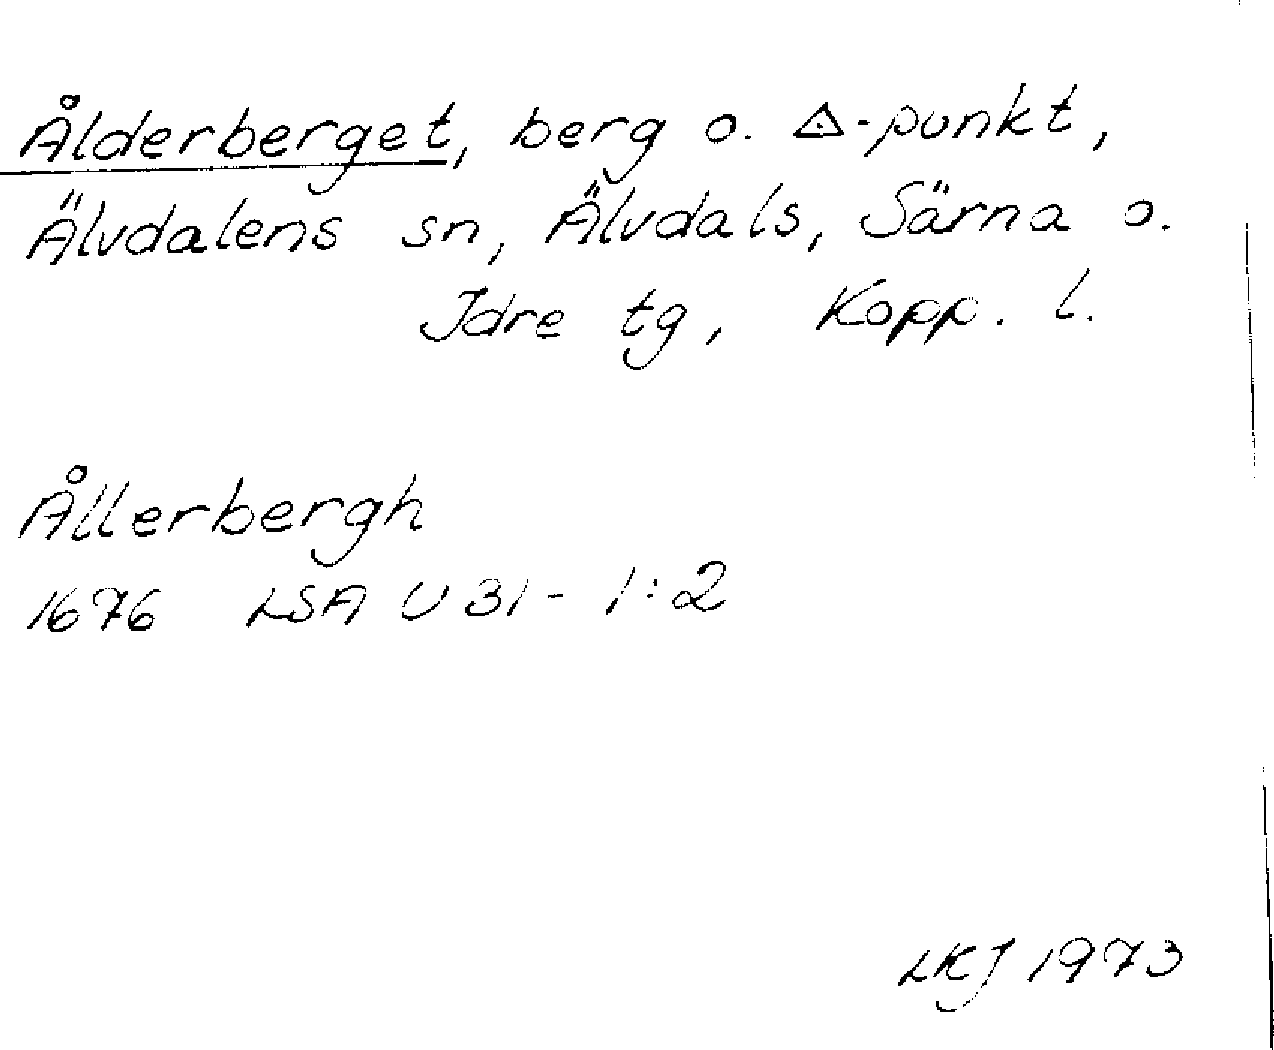 Ålderberget, berg o. △-punkt,
Älvdalens sn, Älvdals, Särna o.
Idre tg, Kopp. l.
Ållerbergh
1676 LSA U 31 - 1:2
LKJ 1973